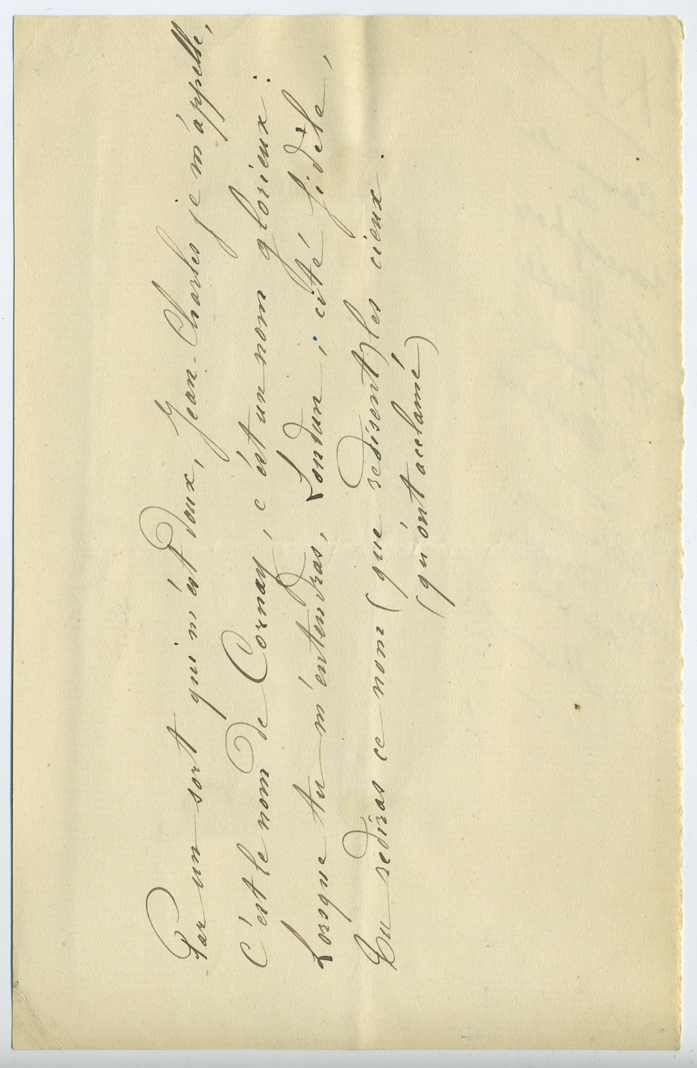 Par un sort qui m'est doux, Jean-Charles je m'appelle,
C'est le nom de Cornay, c'est un nom glorieux :
Lorsque tu m'entendras, Loudun, cité fidèle,
Tu rediras ce nom (que redisent) les cieux.
(qu'ont acclamé)